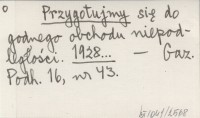 o Przygotujmy się do
godnego obchodu niepod-
ległości. 1928... — Gaz.
Podh. 16, nr 43.